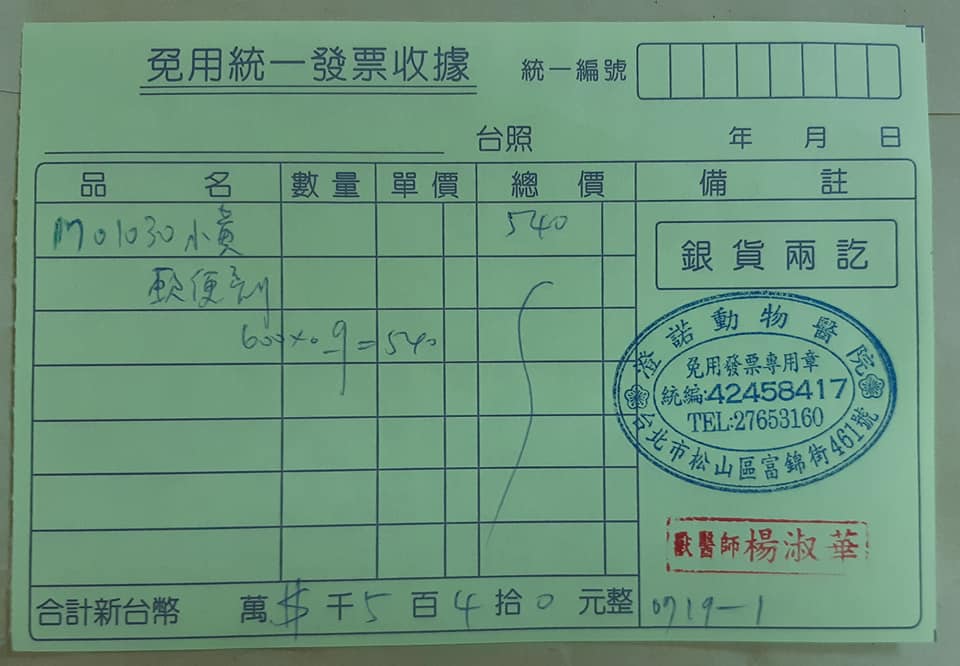 免用統一發票收據 統一編號
台照 年 月 日
品 名 數量 單價 總 價 備 註
M01030 小黃 540
軟便劑
600×0.9=540
銀貨兩訖
澄諾動物醫院
免用發票專用章
統編:42458417
TEL:27653160
台北市松山區富錦街461號
獸醫師楊淑華
合計新台幣 萬 $ 千 5 百 4 拾 0 元整
0719-1